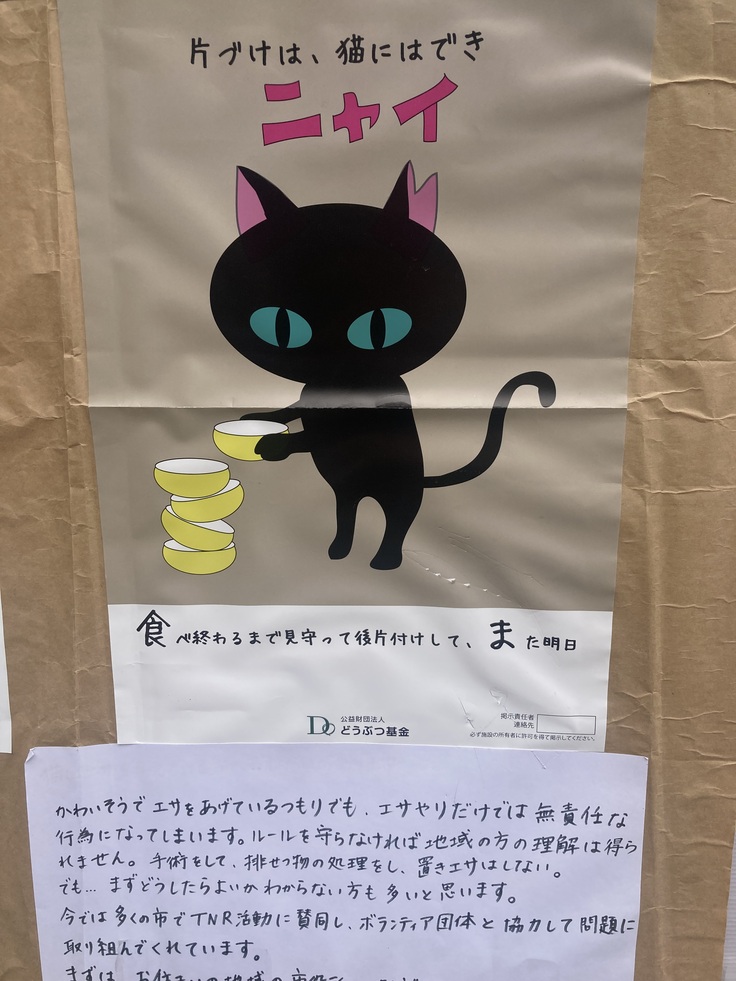 片づけは、猫にはでき
ニャイ
食べ終わるまで見守って後片付けして、また明日
公益財団法人
どうぶつ基金
掲示責任者
連絡先
必ず施設の所有者に許可を得て掲示してください。
かわいそうでエサをあげているつもりでも、エサやりだけでは無責任な
行為になってしまいます。ルールを守らなければ地域の方の理解は得ら
れません。手術をして、排せつ物の処理をし、置きエサはしない。
でも…まずどうしたらよいかわからない方も多いと思います。
今では多くの市でTNR活動に賛同し、ボランティア団体と協力して問題に
取り組んでくれています。
まずは、お住まいの地域の市役